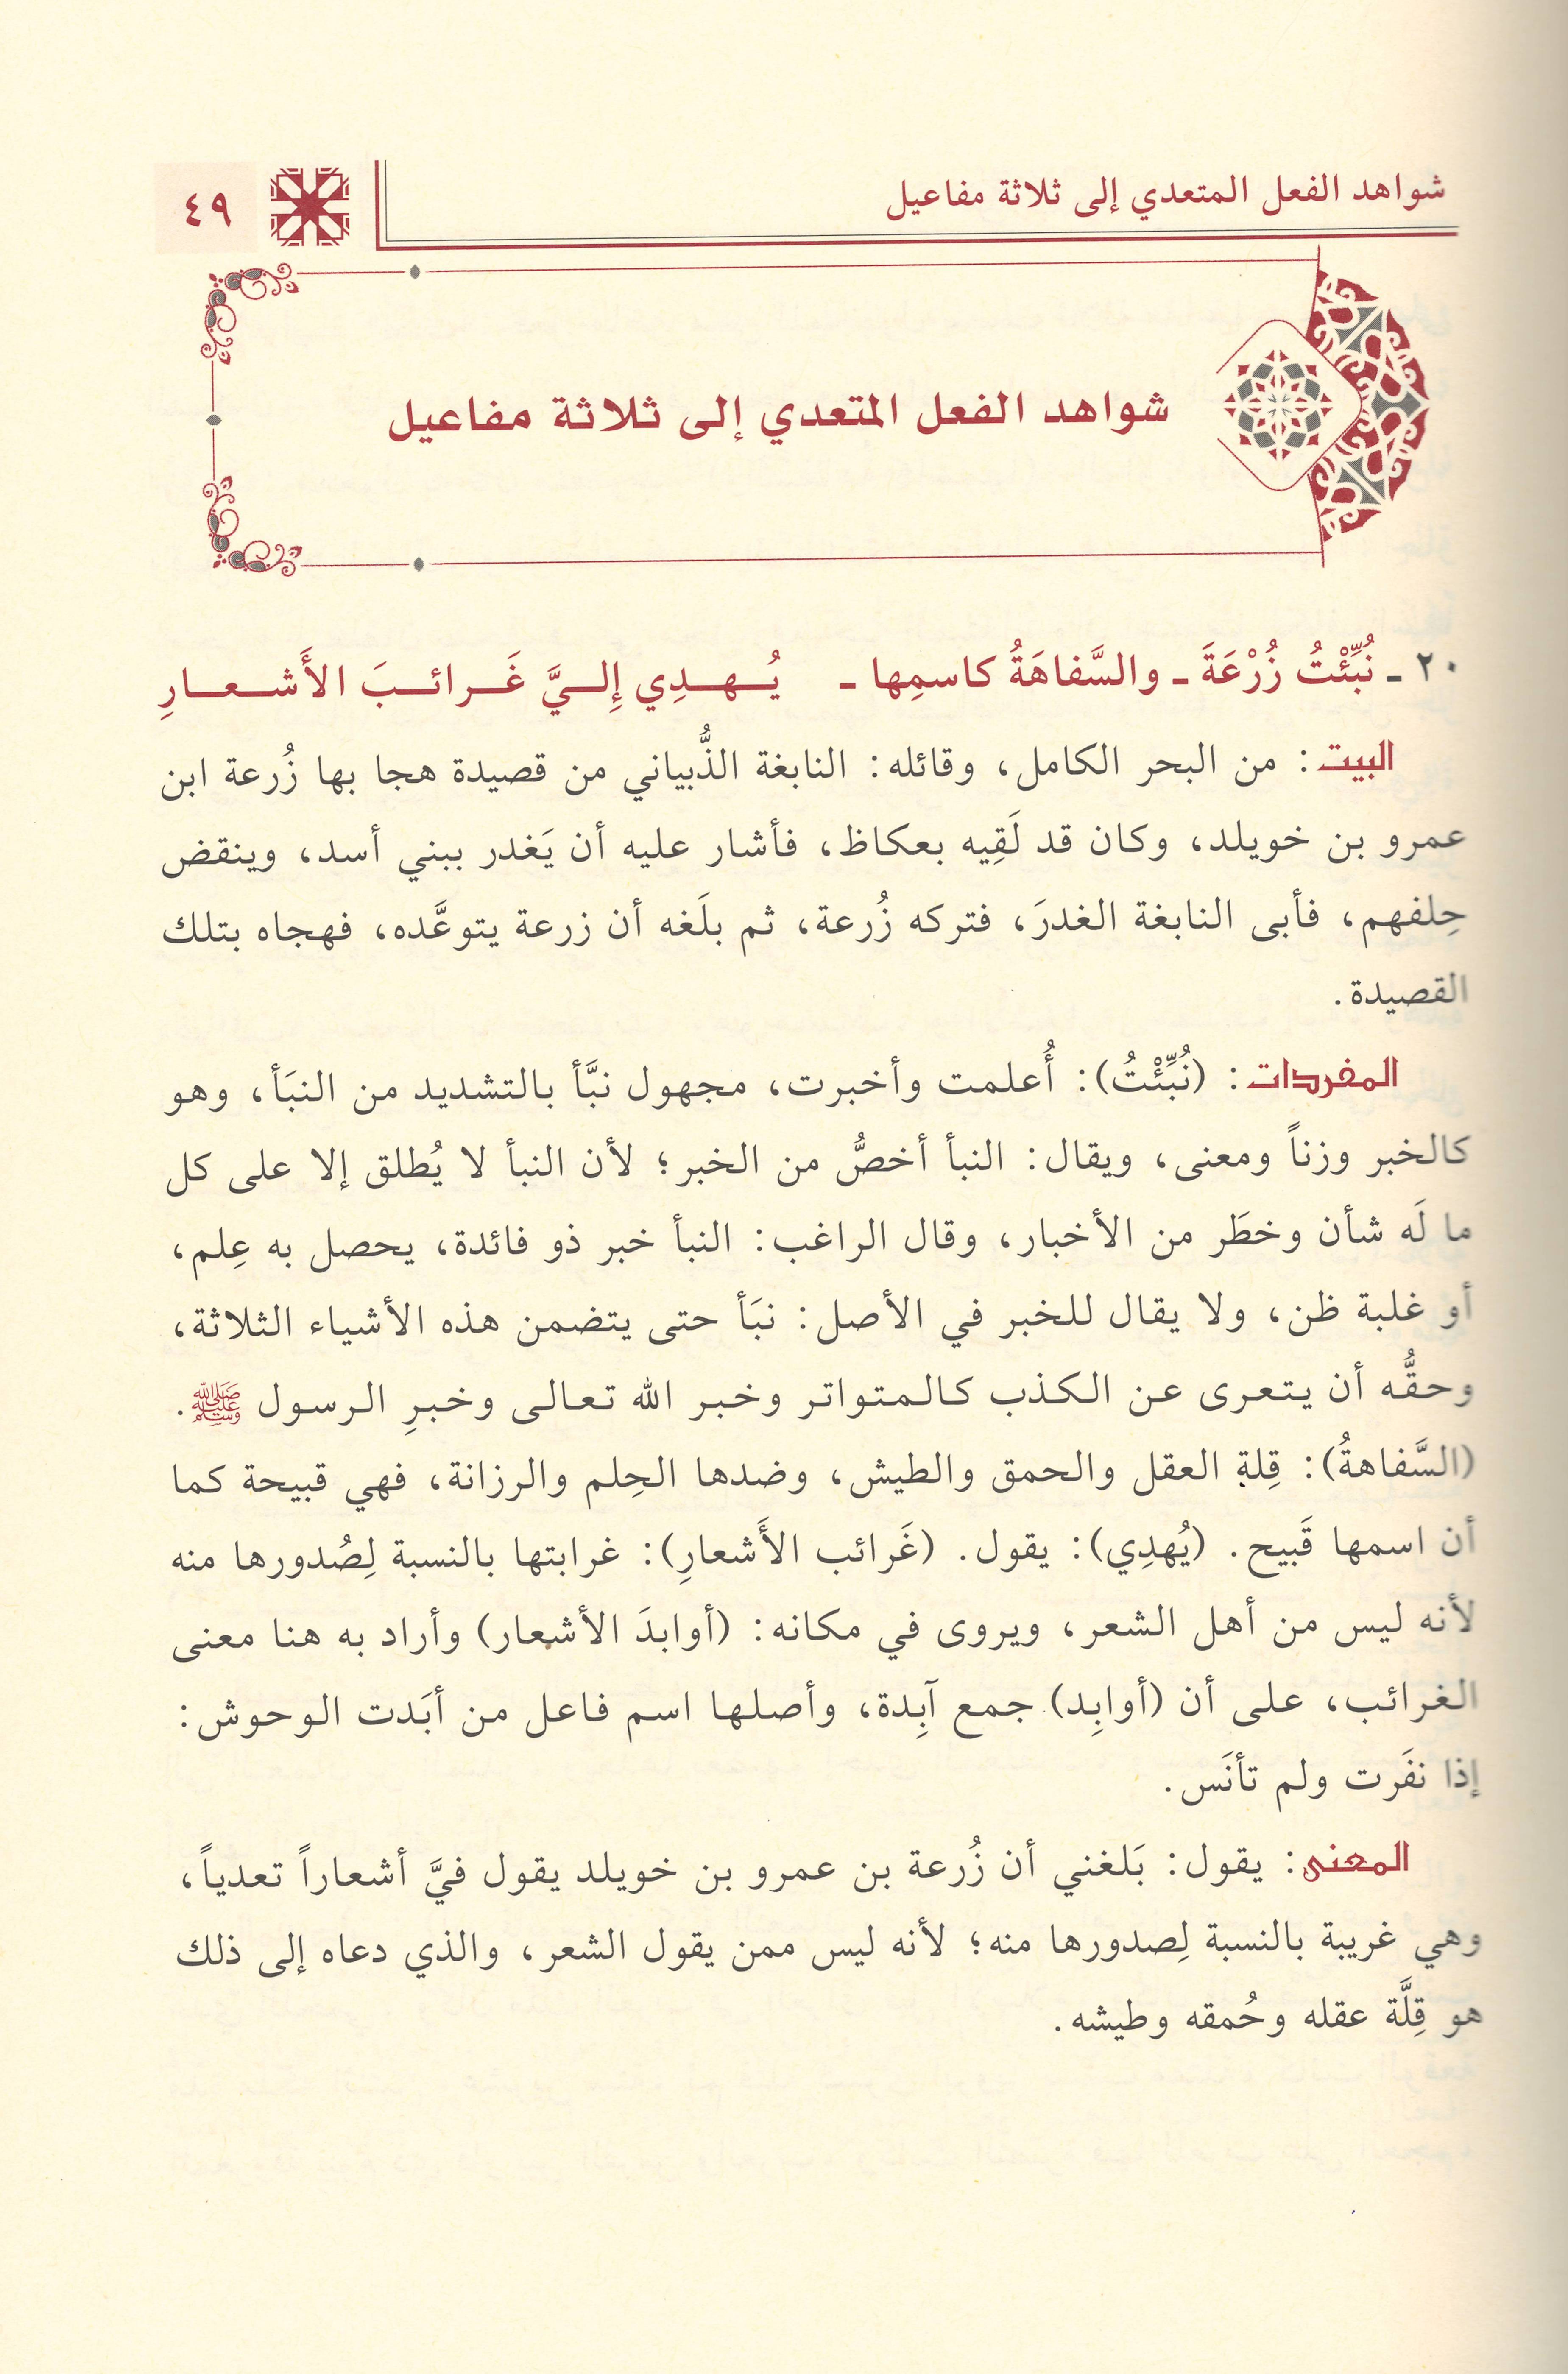 شواهد الفعل المتعدي إلى ثلاثة مفاعيل
٤٩
شواهد الفعل المتعدي إلى ثلاثة مفاعيل
٢٠ ـ نُبِّئْتُ زُرْعَةَ ـ والسَّفاهَةُ كاسمِها ـ يُـهـدِي إِلـيَّ غَـرائـبَ الأَشـعـارِ
البيت: من البحر الكامل، وقائله: النابغة الذُّبياني من قصيدة هجا بها زُرعة ابن
عمرو بن خويلد، وكان قد لَقِيه بعكاظ، فأشار عليه أن يَغدر ببني أسد، وينقض
حِلفهم، فأبى النابغة الغدرَ، فتركه زُرعة، ثم بلَغه أن زرعة يتوعَّده، فهجاه بتلك
القصيدة.
المفردات: (نُبِّئْتُ): أُعلمت وأخبرت، مجهول نبَّأ بالتشديد من النبَأ، وهو
كالخبر وزناً ومعنى، ويقال: النبأ أخصُّ من الخبر؛ لأن النبأ لا يُطلق إلا على كل
ما لَه شأن وخطَر من الأخبار، وقال الراغب: النبأ خبر ذو فائدة، يحصل به عِلم،
أو غلبة ظن، ولا يقال للخبر في الأصل: نبَأ حتى يتضمن هذه الأشياء الثلاثة،
وحقُّه أن يتعرى عن الكذب كالمتواتر وخبر الله تعالى وخبرِ الرسول ﷺ.
(السَّفاهةُ): قِلةِ العقل والحمق والطيش، وضدها الحِلم والرزانة، فهي قبيحة كما
أن اسمها قَبيح. (يُهدِي): يقول. (غَرائب الأَشعارِ): غرابتها بالنسبة لِصُدورها منه
لأنه ليس من أهل الشعر، ويروى في مكانه: (أوابدَ الأشعار) وأراد به هنا معنى
الغرائب، على أن (أوابِد) جمع آبِدة، وأصلها اسم فاعل من أبَدت الوحوش:
إذا نفَرت ولم تأنَس.
المعنى: يقول: بَلغني أن زُرعة بن عمرو بن خويلد يقول فيَّ أشعاراً تعدياً،
وهي غريبة بالنسبة لِصدورها منه؛ لأنه ليس ممن يقول الشعر، والذي دعاه إلى ذلك
هو قِلَّة عقله وحُمقه وطيشه.